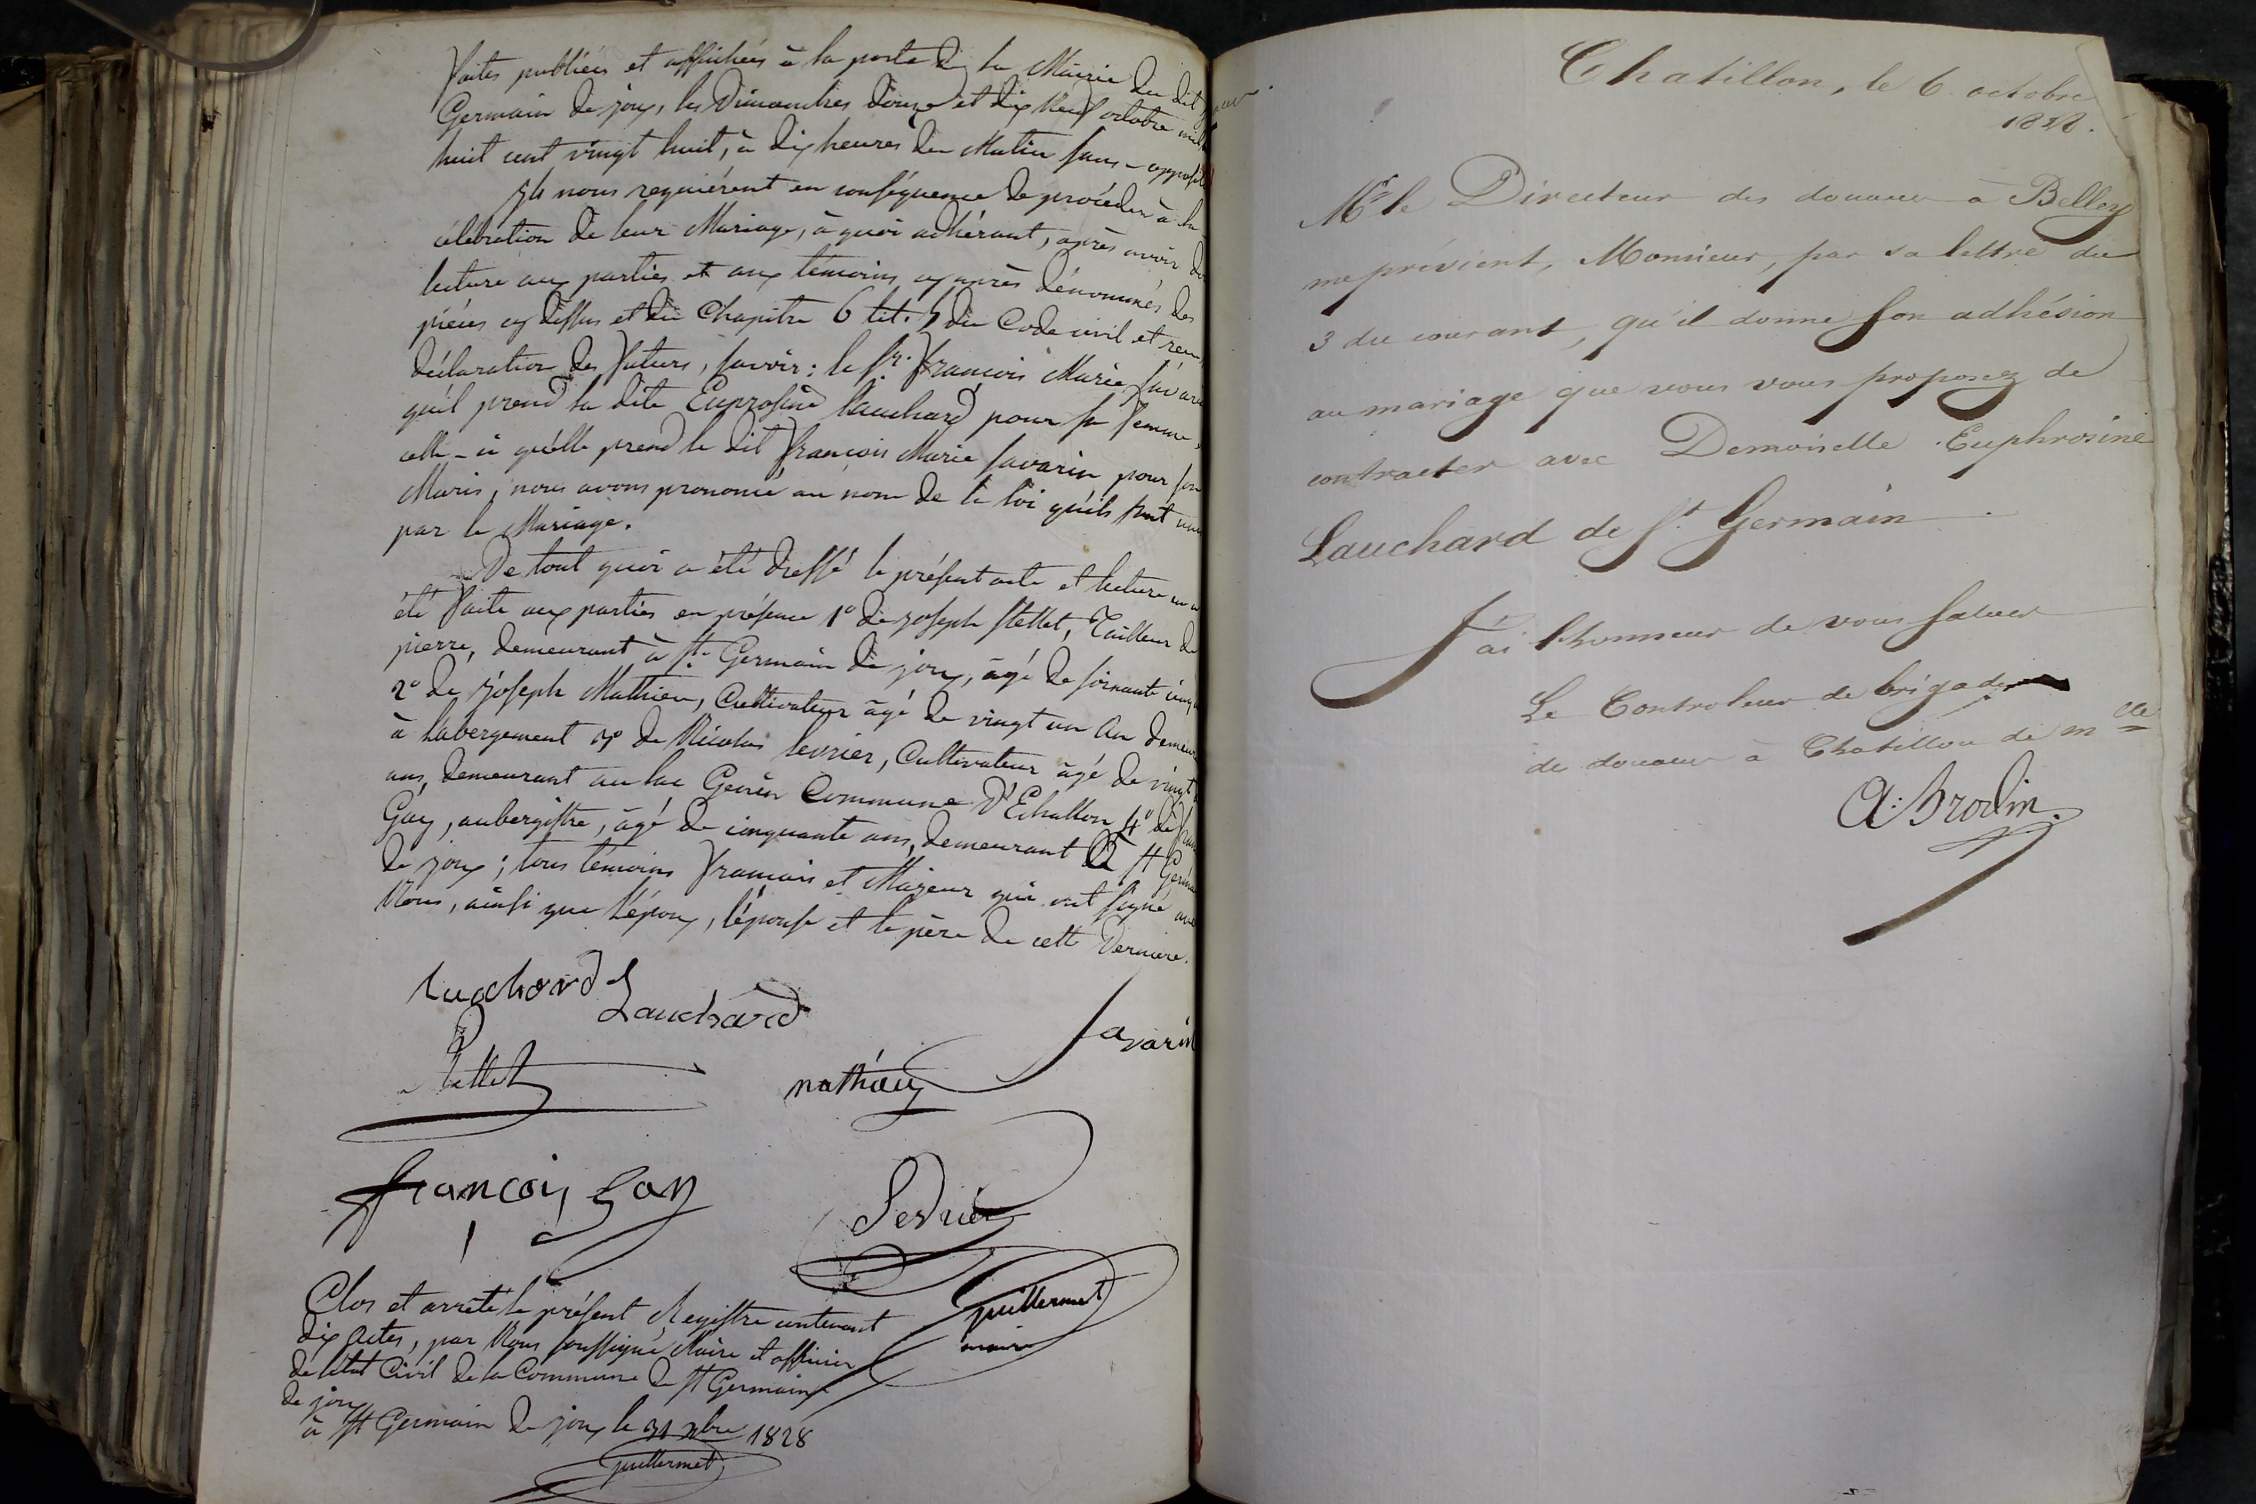 faites publiées et affichées à la porte de la Mairie du dit
Germain de joux, les Dimanches douze et dix neuf octobre mil
huit cent vingt huit, à dix heures du Matin sans -
Ils nous requiérent en conséquence de procéder à la
célébration de leur Mariage, à quoi adhérant, après avoir
lecture aux parties et aux témoins cy après dénommés des
pièces cy dessus et du Chapitre 6 tit. 5 du Code civil et
déclaration des futurs, savoir: le sr. françois Marie
qu'il prend la dite Euprosine Lauchard pour sa femme,
celle-ci qu'elle prend le dit françois Marie savarin pour son
Maris, nous avons prononcé au nom de la loi qu'ils sont
par le Mariage.
De tout quoi a été dressé le présent acte et lecture en a
été faite aux parties en présence 1° de joseph Mettet, Tailleur de
pierre, demeurant à St. Germain de joux, âgé de soixante
2° de joseph Mathieu, Cultivateur âgé de vingt un an
à Labergement 3° de Nicolas levrier, Cultivateur âgé de vingt
ans, demeurant au lac Genin Commune D'Echallon 4° de
Gay, aubergiste, âgé de cinquante ans, demeurant à St
de joux; tous témoins francais et Majeur qui ont signé
Nous, ainsi que l'époux, l'épouse et le père de cette Dernière.
Lauchard
Lauchard
savarin
mathieu
françois Gay
Levrier
guillermet
maire
Clos et arrêté le présent Registre contenant
dix actes, par Nous soussigné Maire et officier
de l'état Civil de la Commune de St Germain
de joux
à St Germain de joux le 31 xbre 1828
guillermet
Chatillon, le 6 octobre
1828.
Mr le Directeur des douanes à Belley
me prévient, Monsieur, par sa lettre du
3 du courant, qu'il donne son adhésion
au mariage que vous vous proposez de
contracter avec Demoiselle Euphrosine
Lauchard de St. Germain
J'ai l'honneur de vous saluer
Le Controleur de brigades
de douanes à Chatillon de mlle
A: Brodin.